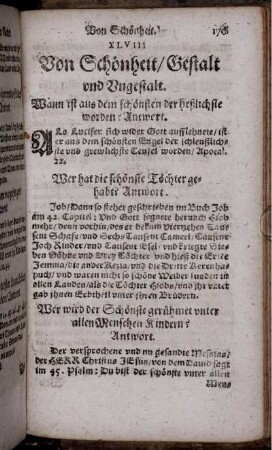 Von Schönheit.
XLVIII
Von Schönheit/Gestalt
und Vngestalt.
Wann ist aus dem schönsten der heßlichste
worden? Antwort.
ALs Lucifer sich wider Gott aufflehnete/ist
er aus dem schönsten Engel der scheußlich-
ste und grewlichste Teufel worden/Apocal.
22.
Wer hat die schönste Töchter ge-
habt? Antwort.
Job/Dann so stehet geschrieben im Buch Job
am 42. Capitel: Und Gott segnete hernach Hiob
mehr/denn vorhin/das er bekam Vierzehen Tau-
sent Schafe/und Sechs Tausent Cameel/Tausent
Joch Rinder/und Tausent Esel/und kriegte Sie-
ben Söhne und Drey Töchter/und hieß die Erste
Jemima/die ander Kezia/und die Dritte Kerenhap-
puch/und waren nicht so schöne Weiber funden in
allen Landen/als die Töchter Hiobs/und ihr vater
gab jhnen Erbtheil unter jhren Brüdern.
Wer wird der Schönste gerühmet unter
allen Menschen Kindern?
Antwort.
Der versprochene und nu gesandte Messias/
der HERR Christus JEsus/von dem David sagt
im 45. Psalm: Du bist der schönste unter allen